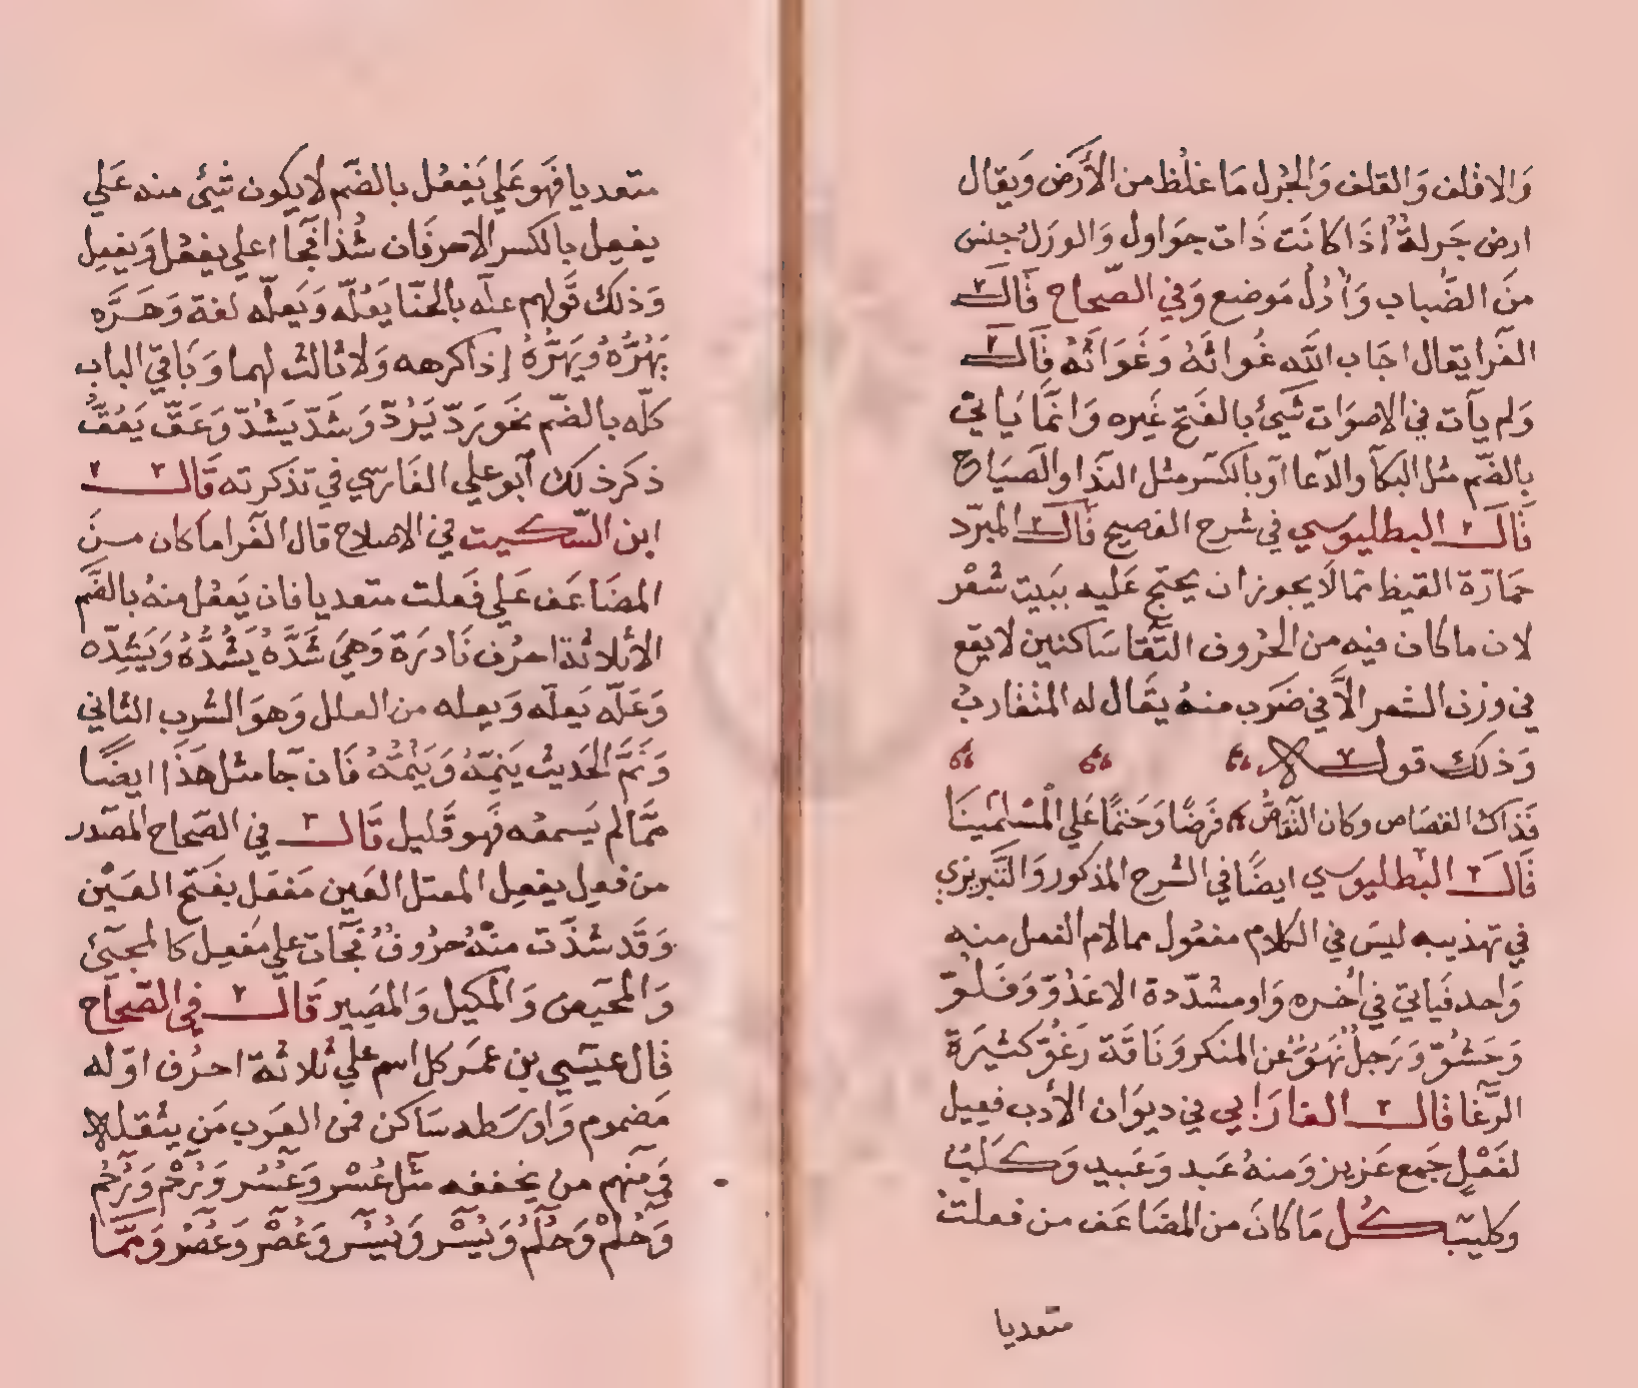 وَالاقلف وَالقلف وَالجْرل مَا غلُظ من الأَرَض وَيقال
ارض جَرلةٌ اذَا كانَت ذَات جوَاول وَالورَلُ جنس
منَ الضّباب وَاُدُلُ مَوضع وَفي الصّحاح قَالَ
الفَرا يقال اجَاب اللَّه غُواثَهُ وَغَوَاثَهُ قَالَ
وَلم يأت في الاصوَات شَيئ بالفَتح غَيره وَانمَّا يَاتي
بِالضَّم مثل البكآ والدّعا اَوبالكسَر مثل النّدَا والصَيَاح
قَالَ البطليوسي في شرح الفصيح قَالَ المبَرّد
حَمارّة القيظ ممّا لَا يجوز ان يحتجّ عَليه ببَيت شعْر
لان ما كان فيه من الحرُوف التَقا سَاكنين لا يقع
في وزن الشعر الاَّ في ضَرَب منهُ يقَال له المتقَاربُ
وَذلك قولـــه
فَذاكَ القصَاص وكان التَّقاصُّ فرَضًا وَحَتمًا عَلي المْسْلمْينَا
قَالَ البطليوسي ايضًا في الشرح المذكور وَالتَّبريزي
في تهذيبه ليسَ في الكلام مفعُول مما لام الفعل منه
وَاحد فَياتي في اخره وَاو مشدّدة الا عَدُوّ وَفَلُوّ
وَحَسُوّ وَرَجلٌ نَهُوٌّ عن المنكر وَنَاقَة رَغُوّ كثيَرة
الرَّغا قالَ الفارَابي في ديوَان الأدب فعِيل
لفَعْلٍ جَمع عَزيز وَمنهُ عَبد وَعَبيد وَكَلبٌ
وكليَب كُل مَا كانَ من المضَاعَف من فعلتُ
متعديا
متعديا فَهو عَلي يَفعُل بالضَّم لا يكون شيئ منه عَلي
يفعِل بالكسر الا حرفَان شُذا فجآا علي يفعُل وَيفعِل
وَذلك قَولهم علّه بالحنّا يَعُلّه وَيَعِلّه لغة وَهَـرَّه
يَهُرُّهُ وَيَهِرُّهُ إذا كرهه وَلا ثالث لهما وَبَاقيّ الباب
كلّه بالضّم نحَو رَدّ يَرُدّ وَشَدّ يَشُدّ وَعَقّ يَعُقّ
ذكر ذلك أبو علي الفَارسي في تذكرته قَالَ
ابن السّكيت في الاصلاح قال الفَرا ما كان مـنَ
المضَاعَف عَلي فَعلت متعديا فان يَفعُل منهُ بالضَّم
الا ثلاثة احرُف نَادرَة وَهيَ شَدَّهُ يَشُدُّهُ وَيَشِدّه
وَعَلّه يَعلّه وَيعِله من العلل وَهوَ الشرب الثاني
وَنَمَّ الحَديث يَنِمّهُ وَيَنُمُّهُ فَان جَآ مثل هَذَا ايضًا
ممَّا لم يَسمعْه فَهو قَليل قَالَ في الصّحاح المصَدر
من فعِل يفعِل المعتل العَين مَفعَل بفَتح العَيْن
وَقَد شذّت منْهُ حرُوفٌ فجَآت علي مَفعِل كالمجيَئ
وَالمحيَص وَالمكيل وَالمصِير قَالَ في الصّحاح
قال عيسَي بن عمَر كل اسم علي ثلاثة احرُف اوّله
مَضموم وَاوسَطه سَاكن فمن العرَب مَن يثقله
وَمنهم من يخففه مثل عُسْر وَعُسُر وَرُحْم وَرُحُم
وَحُلْم وَحُلُم وَيُسْر وَيُسُر وَعُصْر وَعُصُر وَممَّا